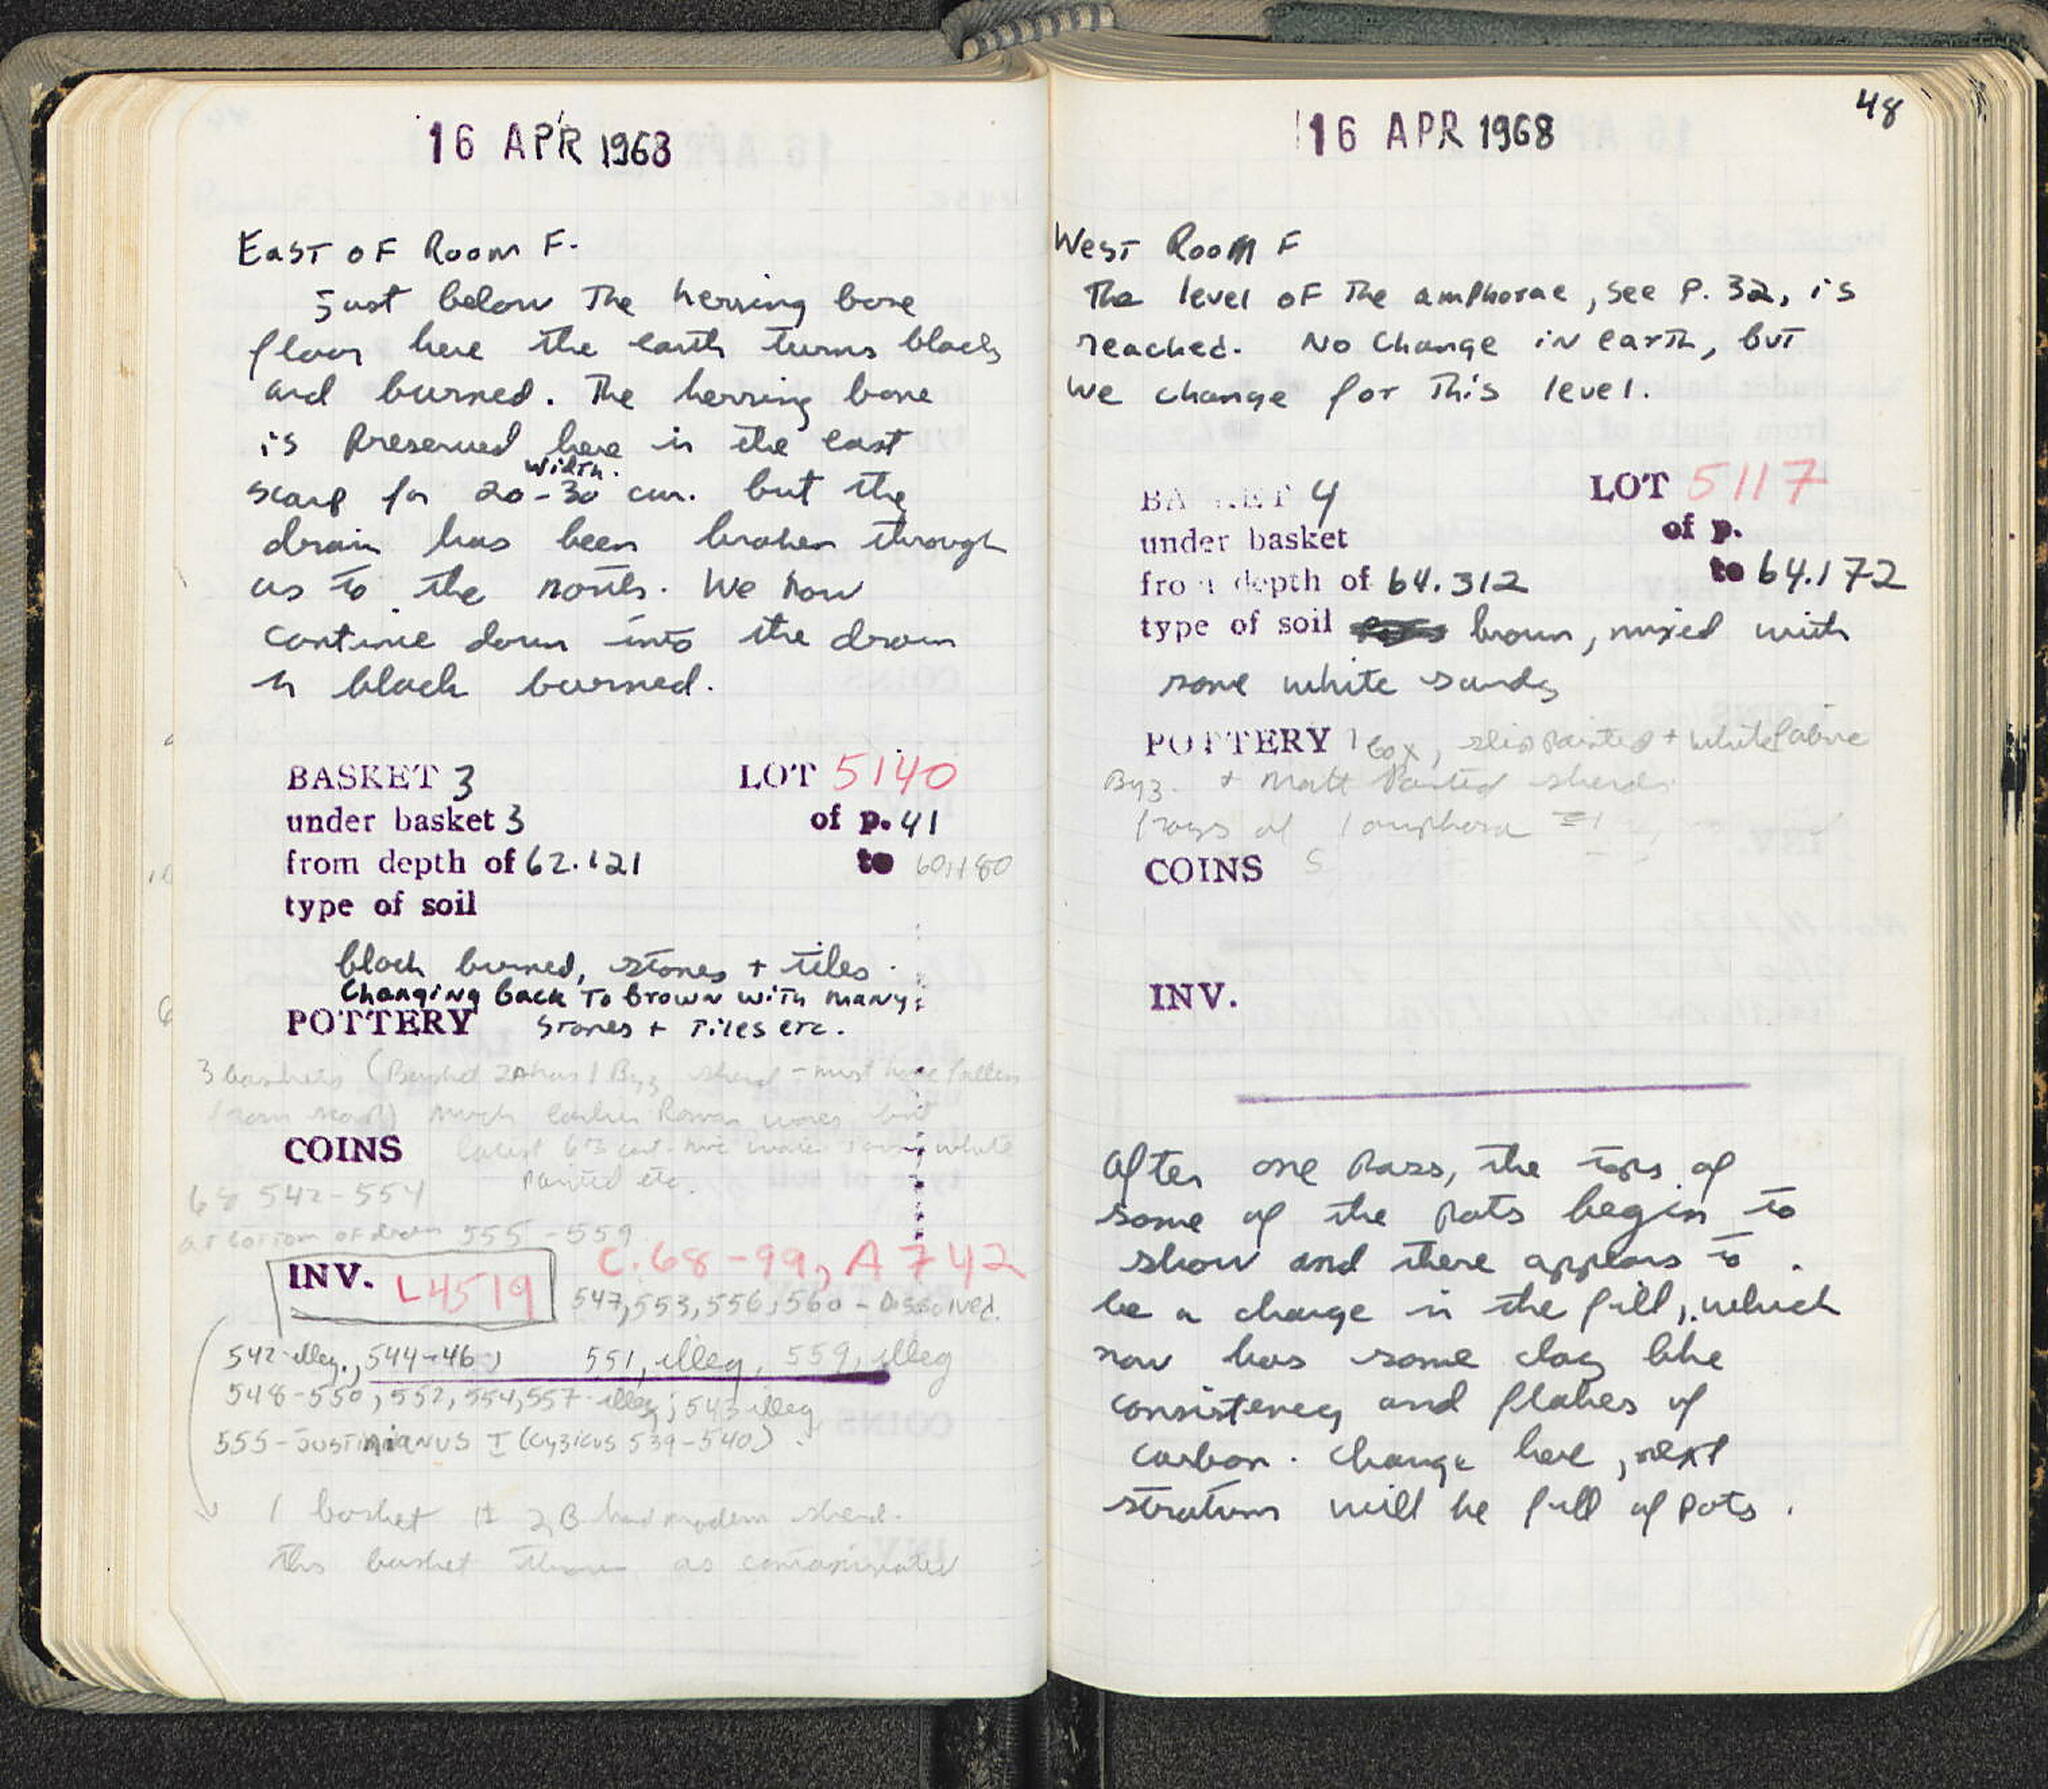 16 APR 1968
East of Room F.
Just below the herring bone
floor here the earth turns black
and burned. The herring bone
is preserved here in the east
width.
scarp for 20-30 cm. but the
drain has been broken through
us to the north. We now
continue down into the drain
in black burned.
BASKET 3 LOT 5140
under basket 3 of p. 41
from depth of 62.121 to 60.180
type of soil
black burned, stones + tiles.
Changing back to brown with many
POTTERY stones + tiles etc.
3 baskets (Basket 2A has 1 Byz sherd - must have fallen
from scarp) much earlier Roman wares but
COINS latest 6th cent. white
painted etc.
68 542-554
at bottom of drain 555-559
C.68-99, A 742
INV. L4519
547, 553, 556, 560 - Dissolved.
542-illeg., 544-46, 551, illeg, 559, illeg
548-550, 552, 554, 557-illeg; 543 illeg
555-Justinianus I (Cyzicus 539-540)
1 basket # 2B had modern sherd.
This basket thrown as contaminated
48
16 APR 1968
West Room F
The level of the amphorae, see P. 32, is
reached. No change in earth, but
we change for this level.
BASKET 4 LOT 5117
under basket of p.
from depth of 64.312 to 64.172
type of soil brown, mixed with
some white sandy
POTTERY 1 box, slip painted + white fabric
Byz. + Matt Painted sherds
frags of 1 amphora
COINS
INV.
After one pass, the tops of
some of the pots begin to
show and there appears to
be a change in the fill, which
now has some clay like
consistency and flakes of
carbon. Change here, next
stratum will be full of pots.